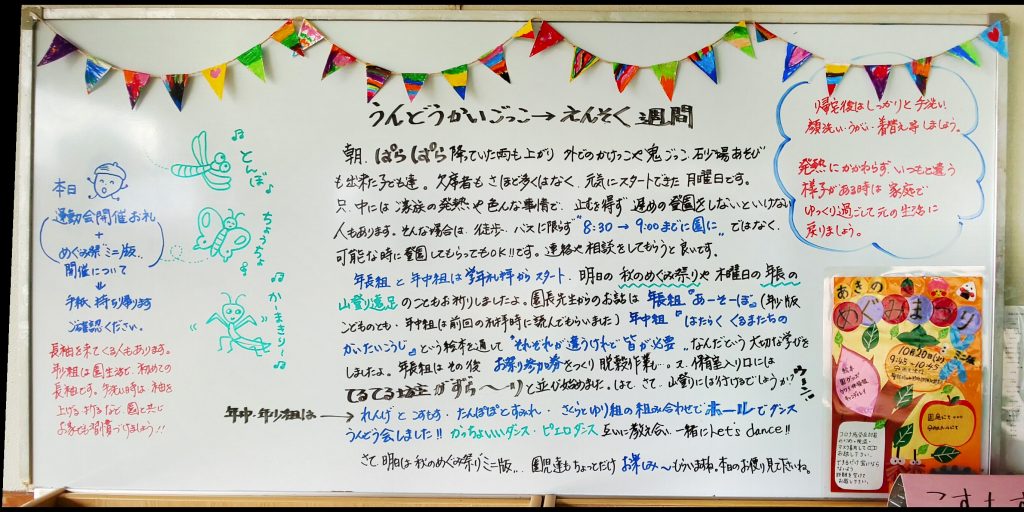 うんどうかいごっこ→えんそく週間
朝、ぱらぱら降っていた雨も上がり 外でのかけっこや鬼ごっこ・砂場あそび
も出来た子ども達。欠席者もさほど多くはなく、元気にスタートできた 月曜日です。
只、中には 家族の発熱や色んな事情で、止むを得ず 遅めの登園をしないといけない
人もあります。そんな場合は、徒歩、バスに限らず"8:30→9:00までに園に"ではなく、
可能な時に登園してもらってもOK!!です。連絡や相談をしてもらうと良いです。
年長組と年中組は学年礼拝からスタート。明日の秋のめぐみ祭りや木曜日の年長の
山登り遠足のこともお祈りしましたよ。園長先生からのお話は 年長組『あーそーぼ』(年少版
こどものとも・年中組は前回の礼拝時に読んでもらいました) 年中組『はたらくくるまたちの
かいたいこうじ』という絵本を通して"それぞれが違うけれど皆が必要"なんだという大切な学びを
しましたよ。年長組はその後 お祭り参加券をつくり 脱穀作業…。又、保育室入り口には
てるてる坊主がずら〜〜りと並び始めました。はて、さて、山登りには付けるでしょうか?ウーン!
年中・年少組は→れんげとこすもす・たんぽぽとすみれ・さくらとゆり組の組み合わせでホールでダンス
うんどう会しました!!かっちょいいダンス・ピエロダンス 互いに教え合い、一緒にLet's dance!!
さて明日は秋のめぐみ祭りミニ版… 園児達もちょっとだけお楽しみ〜もらいますね。本日のお便り見て下さいね。
本日
運動会開催お礼
+
めぐみ祭ミニ版
開催について
⇓
手紙、持ち帰ります
ご確認ください。
長袖を来てくる人もあります。
年少組は園生活で初めての
長袖です。手洗い時は袖を
上げる・折るなど、園と共に
お家でも習慣づけましょう!!
とんぼ
ちょうちょ
かーまきりー
帰宅後はしっかりと手洗い
顔洗い・うがい・着替え等しましょう。
発熱にかかわらず、いつもと違う
様子がある時は 家庭で
ゆっくり過ごして元の生活に
戻りましょう。
あきの
めぐみまつり
ミニ版
10月20日(火)
9:45〜10:45